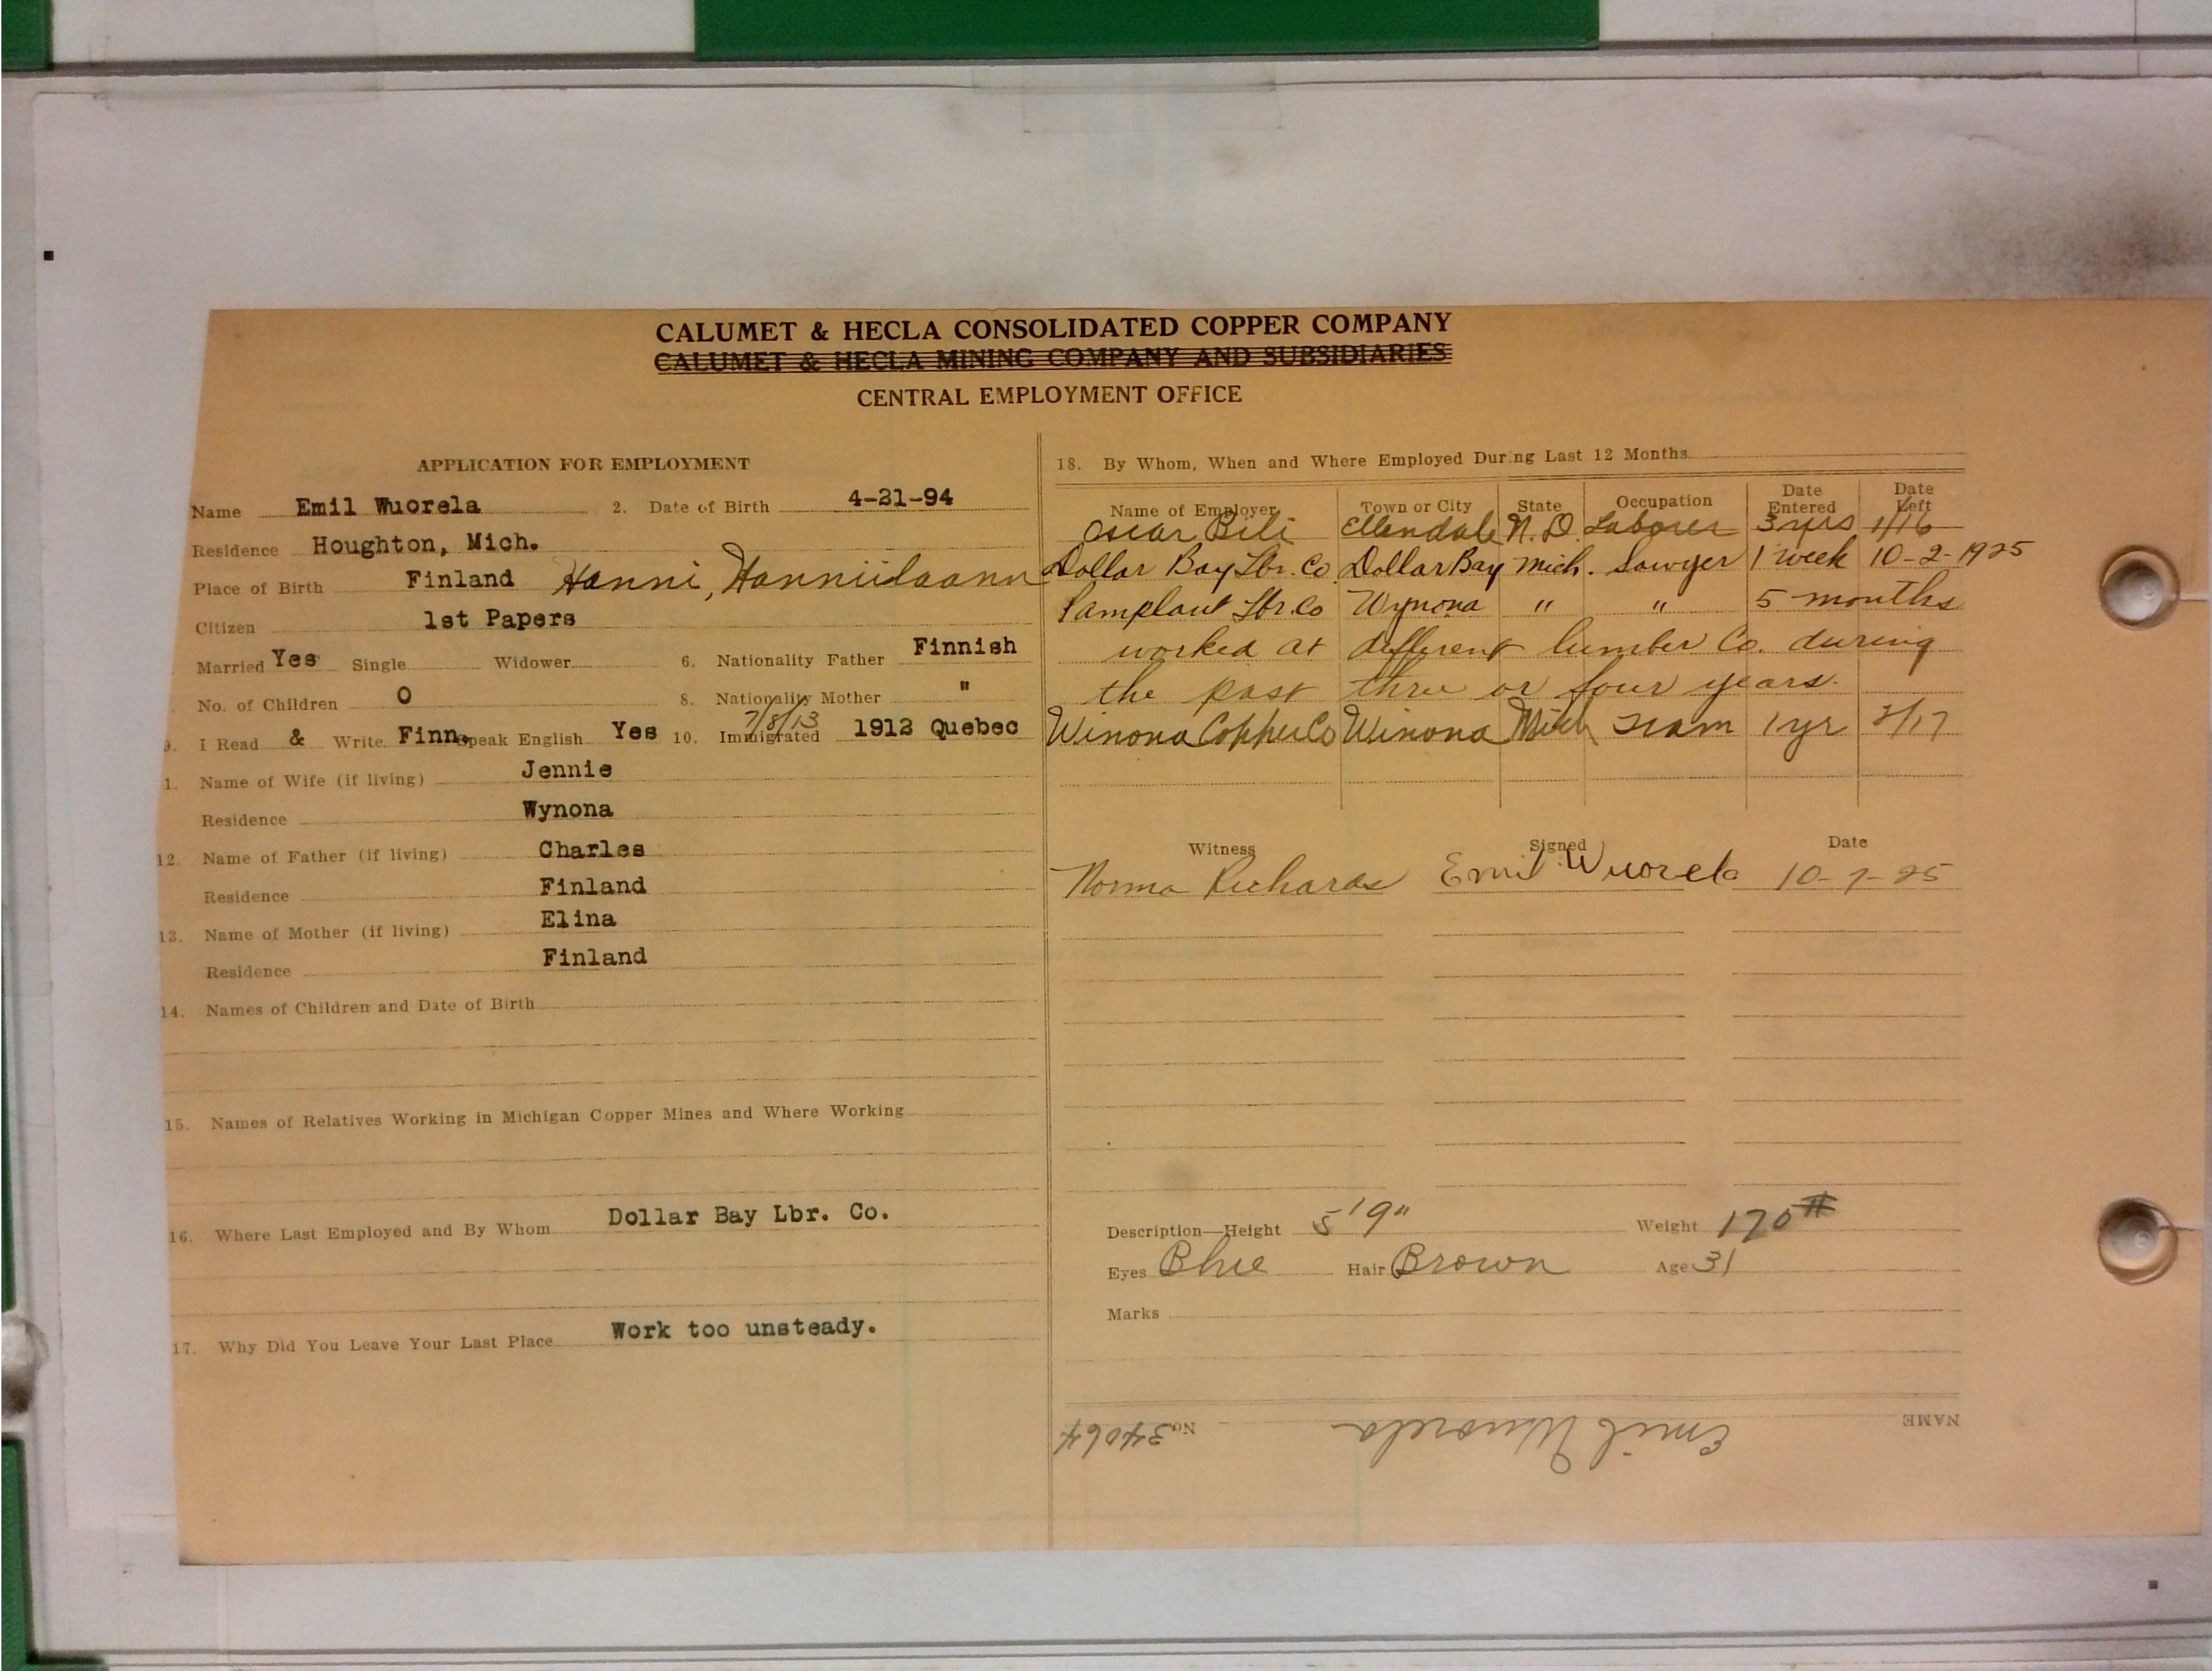 CALUMET & HECLA CONSOLIDATED COPPER COMPANY
CALUMET & HECLA MINING COMPANY AND SUBSIDIARIES
CENTRAL EMPLOYMENT OFFICE
APPLICATION FOR EMPLOYMENT
Name Emil Wuorela 2. Date of Birth 4-21-94
Residence Houghton, Mich.
Place of Birth Finland Hanni,
Citizen 1st Papers
Married Yes Single Widower 6. Nationality Father Finnish
No. of Children 0 8. Nationality Mother "
7/8/13
9. I Read & Write Finn. Speak English Yes 10. Immigrated 1912 Quebec
1. Name of Wife (if living) Jennie
Residence Wynona
12. Name of Father (if living) Charles
Residence Finland
13. Name of Mother (if living) Elina
Residence Finland
14. Names of Children and Date of Birth
15. Names of Relatives Working in Michigan Copper Mines and Where Working
16. Where Last Employed and By Whom Dollar Bay Lbr. Co.
17. Why Did You Leave Your Last Place Work too unsteady.
18. By Whom, When and Where Employed During Last 12 Months
Name of Employer Town or City State Occupation Date Entered Date Left
Oscar Ellendale N.D. Laborer 3 yrs 1/16
Dollar Bay Lbr. Co. Dollar Bay Mich. Sawyer 1 week 10-2-1925
Lbr. Co Wynona " " 5 months
worked at different lumber Co. during
the past three or four years.
Winona Copper Co Winona Mich 1 yr /17
Witness Signed Date
Norma Richards Emil Wuorela 10-7-25
Description—Height 5'9" Weight 170#
Eyes Blue Hair Brown Age 31
Marks
NAME Emil Wuorela No. 34064